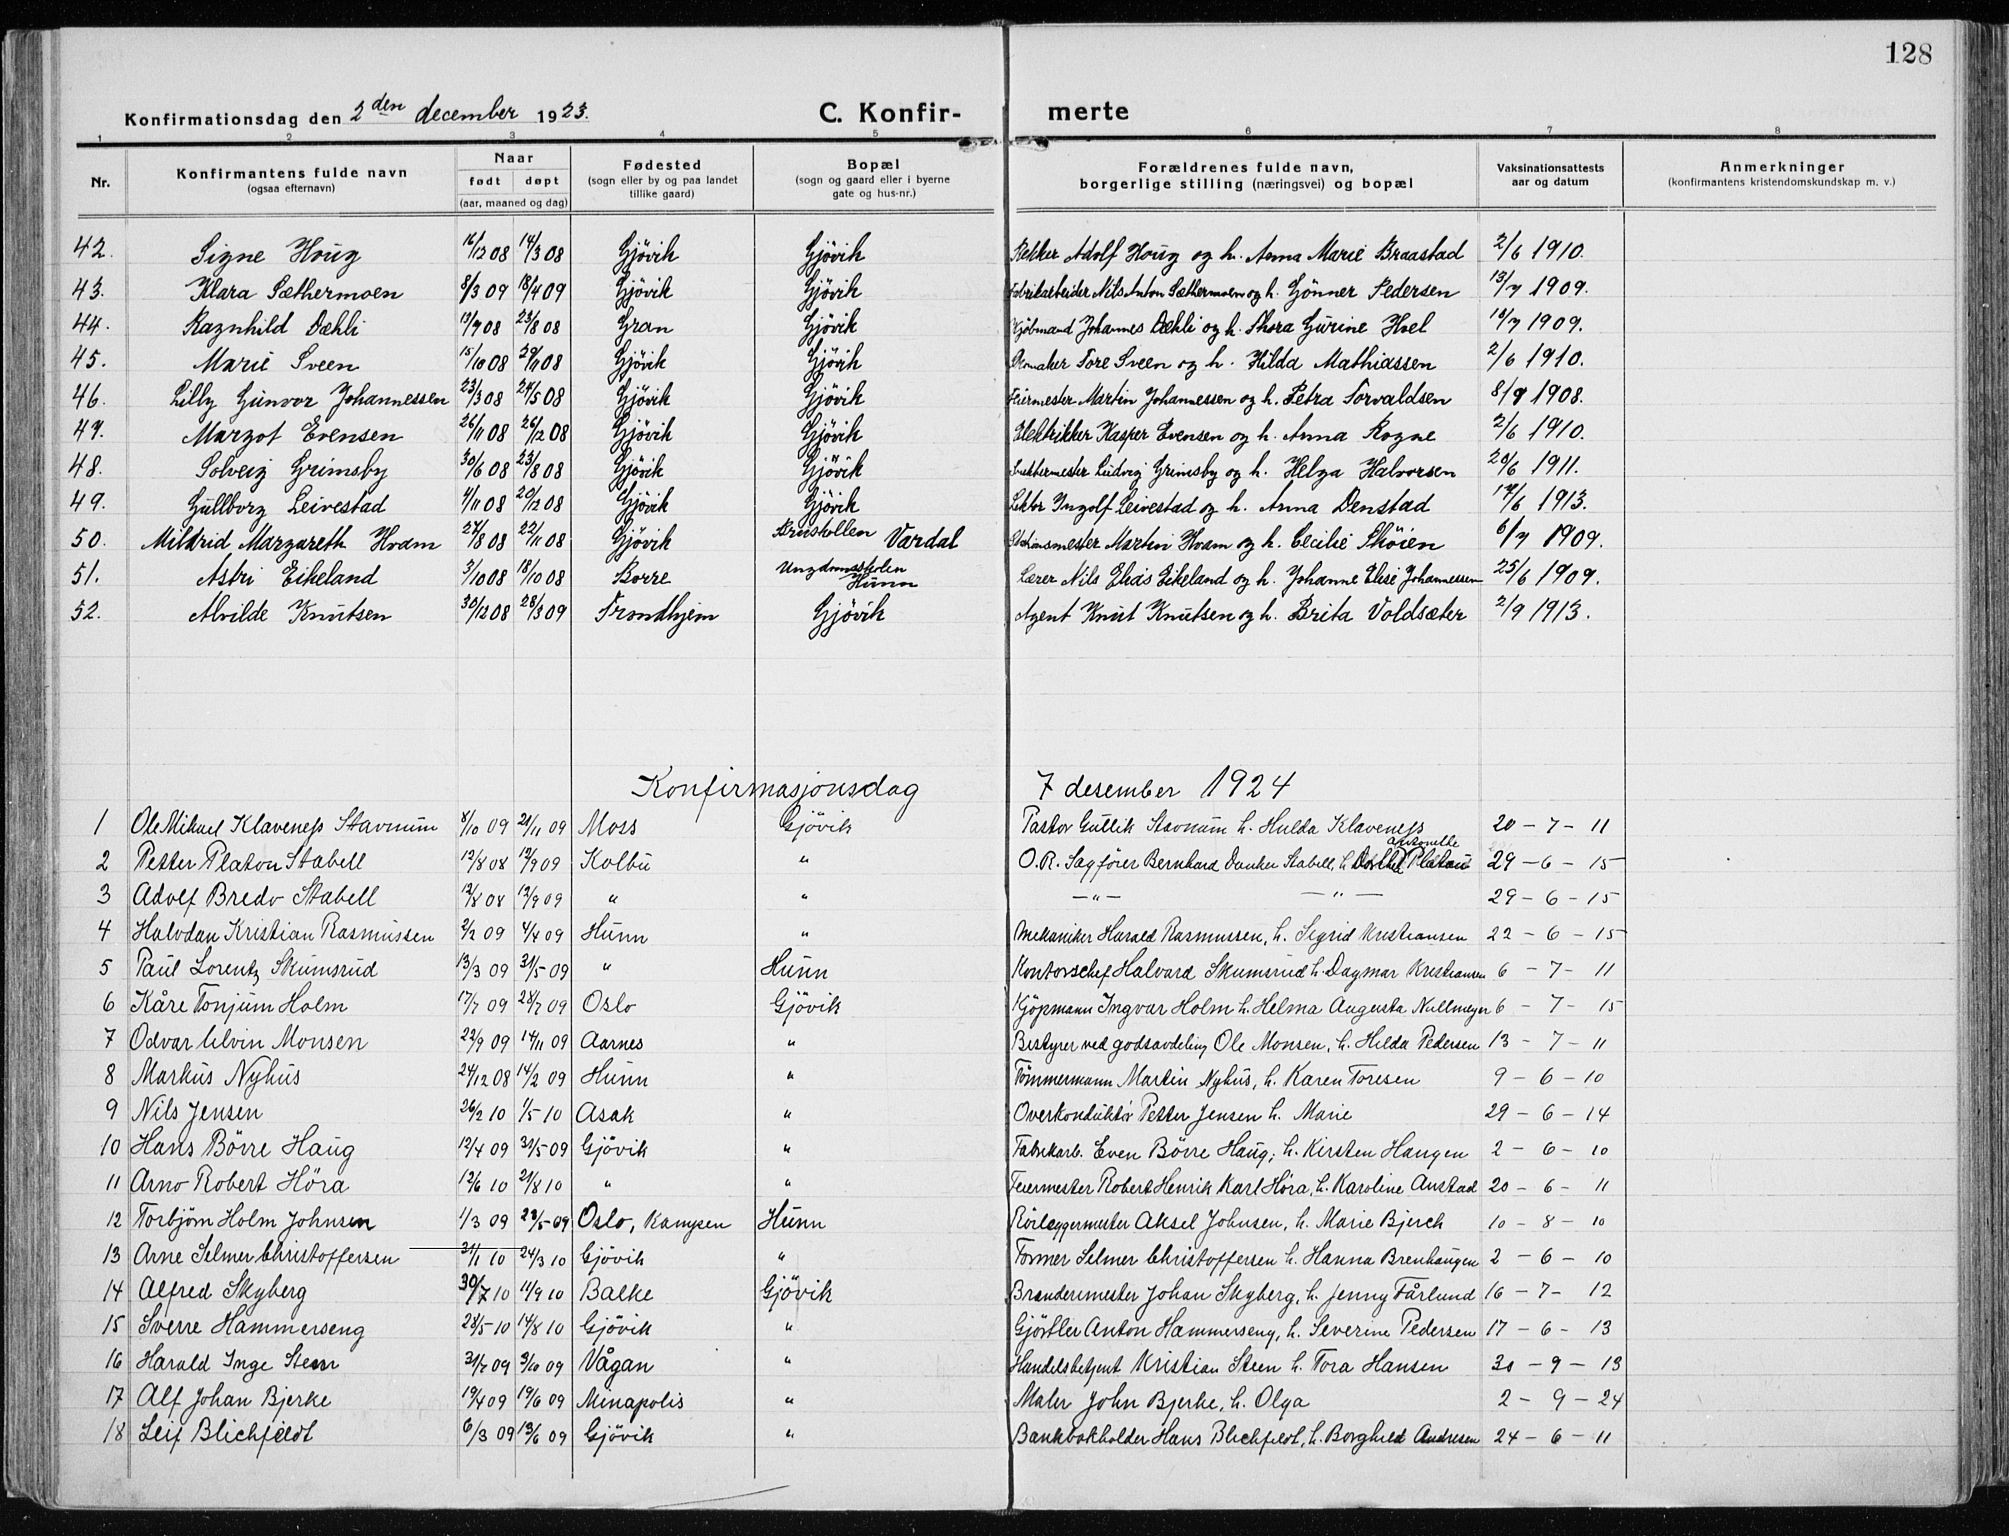 128
Konfirmationsdag den 2den december 1923.
C. Konfir- merte
1 2 3 4 5 6 7 8
Nr. Konfirmantens fulde navn (ogsaa efternavn) Naar født døpt (aar, maaned og dag) Fødested (sogn eller by og paa landet tillike gaard) Bopæl (sogn og gaard eller i byerne gate og hus-nr.) Forældrenes fulde navn, borgerlige stilling (næringsvei) og bopæl Vaksinationsattests aar og datum Anmerkninger (konfirmantens kristendomskundskap m. v.)
42. Signe Houg 16/12 08 14/3 08 Gjövik Gjövik Rekker Adolf Houg og h. Anna Marie Braastad 2/6 1910.
43. Klara Sæthermoen 8/3 09 18/4 09 Gjövik Gjövik Fabrikarbeider Nils Anton Sæthermoen og h. Gönner Pedersen 13/7 1909.
44. Ragnhild Dæhli 13/7 08 23/8 08 Gran Gjövik Kjöbmand Johannes Dæhli og h. Thora Gurine Hoel 18/7 1909.
45. Marie Sveen 15/10 08 29/11 08 Gjövik Gjövik Tore Sveen og h. Hilda Mathiassen 2/6 1910.
46. Lilly Gunvor Johannessen 23/3 08 24/5 08 Gjövik Gjövik Feiermester Martin Johannessen og h. Petra Torvaldsen 8/9 1908.
47. Margot Evensen 26/11 08 26/12 08 Gjövik Gjövik Elektrikker Kasper Evensen og h. Anna Rogne 2/6 1910.
48. Solveig Grimsby 30/6 08 23/8 08 Gjövik Gjövik Snekkermester Ludvig Grimsby og h. Helga Halvorsen 20/6 1911.
49. Gullborg Leivestad 4/11 08 20/12 08 Gjövik Gjövik Lektor Ingolf Leivestad og h. Anna Denstad 17/6 1913.
50. Mildrid Margareth Hvam 27/8 08 22/11 08 Gjövik Vardal Stationsmester Martin Hvam og h. Cecilie Sköien 6/7 1909.
51. Astri Eikeland 3/10 08 18/10 08 Borre Ungdomsskolen Hunn Lærer Nils Elias Eikeland og h. Johanne Elise Johannessen 25/6 1909.
52. Alvilde Knutsen 30/12 08 28/3 09 Trondhjem Gjövik Agent Knut Knutsen og h. Brita Voldsæter 2/9 1913.
Konfirmasjonsdag 7 desember 1924
1 Ole Mikael Klaveness Stavnum 8/10 09 21/11 09 Moss Gjövik Pastor Gullik Stavnum h. Hulda Klaveness 20 - 7 - 11
2 Petter Platou Stabell 12/8 08 12/9 09 Kolbu " O.R. Sagförer Bernhard Danker Stabell, h. Dorthea Antonette Platou 29 - 6 - 15
3 Adolf Bredo Stabell 12/8 08 12/9 09 " " —"— —"— 29 - 6 - 15
4 Halvdan Kristian Rasmussen 2/2 09 4/4 09 Hunn " Mekaniker Harald Rasmussen, h. Sigrid Kristiansen 22 - 6 - 15
5 Paul Lorentz Skumsrud 13/3 09 31/5 09 " Hunn Kontorschef Halvard Skumsrud h. Dagmar Kristiansen 6 - 7 - 11
6 Kåre Tonjum Holm 17/7 09 28/7 09 Oslo Gjövik Kjöpmann Ingvar Holm h. Helma Augusta Nullmeyer 6 - 7 - 15
7 Odvar Elvin Monsen 22/9 09 14/11 09 Aarnes " Bestyrer ved godsavdeling Ole Monsen, h. Hilda Pedersen 13 - 7 - 11
8 Markus Nyhus 24/12 08 14/2 09 Hunn " Tömmermann Martin Nyhus, h. Karen Toresen 9 - 6 - 10
9 Nils Jensen 26/2 10 1/5 10 Asak " Overkonduktör Petter Jensen h. Marie 29 - 6 - 14
10 Hans Börre Haug 12/4 09 31/5 09 Gjövik " Fabrikarb. Even Börre Haug, h. Kirsten Haugen 2 - 6 - 10
11 Arno Robert Höra 12/6 10 21/8 10 " " Feiermester Robert Henrik Karl Höra, h. Karoline Anstad 20 - 6 - 11
12 Torbjörn Holm Johnsen 1/3 09 23/5 09 Oslo, Kampen Hunn Rörleggermester Aksel Johnsen, h. Marie Bjerch 10 - 8 - 10
13 Arne Selmer Christoffersen 21/1 10 24/3 10 Gjövik " Former Selmer Christoffersen h. Hanna Brenhaugen 2 - 6 - 10
14 Alfred Skyberg 30/7 10 11/9 10 Balke Gjövik Brenderimester Johan Skyberg, h. Jenny Fårlund 16 - 7 - 12
15 Sverre Hammerseng 28/5 10 14/8 10 Gjövik " Gjörtler Anton Hammerseng, h. Severine Pedersen 17 - 6 - 13
16 Harald Inge Steen 31/7 09 3/10 09 Vågan " Handelsbetjent Kristian Steen h. Tora Hansen 30 - 9 - 13
17 Alf Johan Bjerke 19/4 09 19/6 09 Minapolis " Maler John Bjerke, h. Olga 2 - 9 - 24
18 Leif Blichfeldt 6/3 09 13/6 09 Gjövik " Bankbokholder Hans Blichfeldt, h. Borghild Andresen 24 - 6 - 11